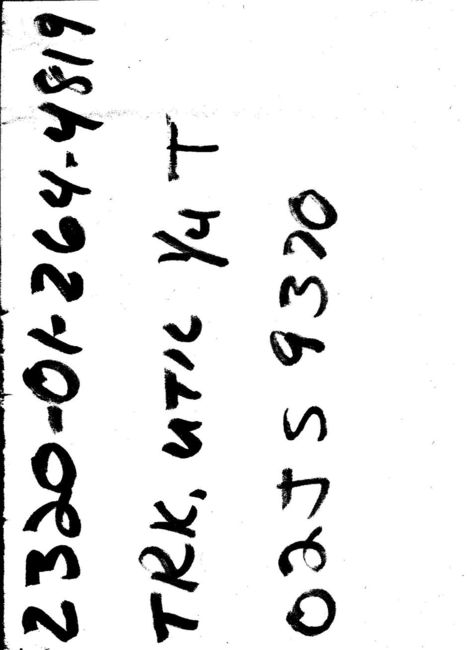 2320-01-264-4819
TRK, UTIL 1/4 T
02JS 9370